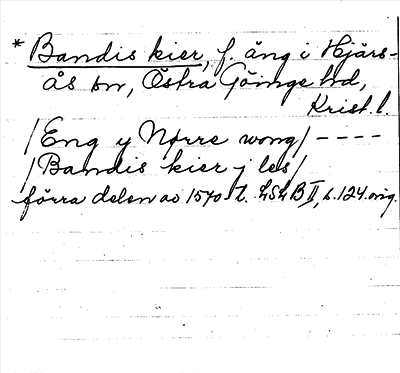 * Bandis kier, f. äng i Hjärs-
ås sn, Östra Göinge hd,
Krist. l.
/Eng y Nørre wong/ ----
/Bandis kier j les/
förra delen av 1570-t. LSLB II, s. 124 orig.